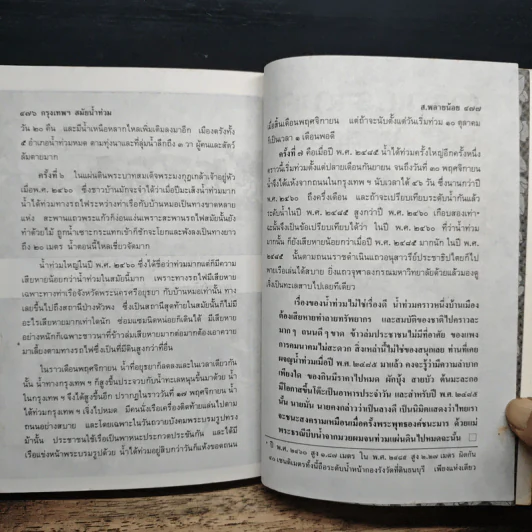 ๔๗๖ กรุงเทพฯ สมัยน้ำท่วม
วัน ๒๐ คืน และมีน้ำเหนือหลากไหลเพิ่มเติมลงมาอีก เมืองตรังทั้ง
๕ อำเภอน้ำท่วมหมด ตามทุ่งนาและที่ลุ่มน้ำลึกถึง ๓ วา ผู้คนและสัตว์
ล้มตายมาก
ครั้งที่ ๖ ในแผ่นดินพระบาทสมเด็จพระมงกุฎเกล้าเจ้าอยู่หัว
เมื่อพ.ศ. ๒๔๖๐ ซึ่งชาวบ้านมักจะจำได้ว่าเมื่อปีมะเส็งน้ำท่วมมาก
น้ำได้ท่วมทางรถไฟระหว่างท่าเรือกับบ้านหมอเป็นทางขาดหลาย
แห่ง สะพานแถวพระแก้วก็ง่อนแง่นเพราะสะพานรถไฟสมัยนั้นยัง
ทำด้วยไม้ ถูกน้ำเซาะกระแทกเข้าก็ชักจะโยกและพังลงเป็นทางยาว
ถึง ๒๐ เมตร น้ำตอนนี้ไหลเชี่ยวจัดมาก
น้ำท่วมใหญ่ในปี พ.ศ. ๒๔๖๐ ซึ่งได้ชื่อว่าท่วมมากแต่ก็มีความ
เสียหายน้อยกว่าน้ำท่วมในสมัยนี้มาก เพราะทางรถไฟมีเสียหาย
เฉพาะทางท่าเรือจังหวัดพระนครศรีอยุธยา กับบ้านหมอเท่านั้น ทาง
เลยขึ้นไปถึงสถานีปางหัวพง ซึ่งเป็นสถานีสุดท้ายในสมัยนั้นก็ไม่มี
อะไรเสียหายมากเท่าใดนัก ซ่อมแซมนิดหน่อยก็เดินได้ มีเสียหาย
อย่างหนักก็เฉพาะชาวนาที่ข้าวล่มเสียหายมากต่อมากต้องเอาควาย
มาเลี้ยงตามทางรถไฟซึ่งเป็นที่มีดินสูงกว่าที่อื่น
ในราวเดือนพฤศจิกายน น้ำที่อยุธยาก็ลดลงและในเวลาเดียวกัน
นั้น น้ำทางกรุงเทพ ฯ ก็สูงขึ้นประจวบกับน้ำทะเลหนุนขึ้นมาด้วย น้ำ
ในกรุงเทพ ฯ จึงได้สูงขึ้นอีก ปรากฏในราววันที่ ๑๗ พฤศจิกายน น้ำ
ได้ท่วมกรุงเทพ ฯ เจิ่งไปหมด มีคนนั่งเรือเครื่องติดท้ายแล่นไปตาม
ถนนอย่างสบาย และโดยเฉพาะในวันถวายบังคมพระบรมรูปทรง
ม้านั้น ประชาชนใช้เรือเป็นพาหนะประกวดประชันกัน และได้มี
เรือแข่งหน้าพระบรมรูปด้วย น้ำได้ท่วมอยู่สิบกว่าวันก็แห้งขอดถนน
ส.พลายน้อย ๔๗๗
เมื่อสิ้นเดือนพฤศจิกายน แต่ถ้าจะนับตั้งแต่วันเริ่มท่วม ๑๐ ตุลาคม
เป็นเวลา ๑ เดือนพอดี
ครั้งที่ ๗ คือเมื่อปี พ.ศ. ๒๔๘๕ น้ำได้ท่วมครั้งใหญ่อีกครั้งหนึ่ง
คราวนี้เริ่มท่วมตั้งแต่ปลายเดือนกันยายน จนถึงวันที่ ๓๐ พฤศจิกายน
น้ำจึงได้แห้งจากถนนในกรุงเทพ ฯ นับเวลาได้ ๔๖ วัน ซึ่งนานกว่าปี
๒๔๖๐ ถึงครึ่งเดือน และถ้าจะเปรียบเทียบระดับน้ำกันแล้ว
ระดับน้ำในปี พ.ศ. ๒๔๘๕ สูงกว่าปี พ.ศ. ๒๔๖๐ เกือบสองเท่า*
ฉะนั้นจึงเป็นข้อเปรียบเทียบได้ว่า ในปี พ.ศ. ๒๔๖๐ ที่ว่าน้ำท่วม
มากนั้น ก็ยังเสียหายน้อยกว่าเมื่อปี พ.ศ. ๒๔๘๕ มากนัก ในปี พ.ศ.
๒๔๘๕ นั้นตามถนนราชดำเนินแถวอนุสาวรีย์ประชาธิปไตยก็ไป
พายเรือเล่นได้สบาย ยิ่งแถวจุฬาลงกรณมหาวิทยาลัยด้วยแล้วมองดู
เวิ้งเป็นทะเลสาบไปเลยทีเดียว
เรื่องของน้ำท่วมไม่ใช่เรื่องดี น้ำท่วมคราวหนึ่งบ้านเมือง
ต้องเสียหายทำลายทรัพยากร และสมบัติของชาติไปคราวละ
มาก ๆ ถนนดี ๆ ขาด ข้าวล่มประชาชนไม่มีที่อาศัย ของแพง
การคมนาคมไม่สะดวก สิ่งเหล่านี้ไม่ใช่ของสนุกเลย ท่านที่เคย
ผจญน้ำท่วมเมื่อปี พ.ศ. ๒๔๘๕ มาแล้ว คงจะรู้ว่ามีความลำบาก
เพียงใด ของกินมีราคาไปหมด ผักบุ้ง สายบัว ต้นมะละกอ
มีโอกาสขึ้นโต๊ะเป็นอาหารประจำวัน และสำหรับปี พ.ศ. ๒๔๘๕
นั้น นายมั่น นายคงกล่าวว่าเป็นลางดี เป็นนิมิตแสดงว่าไทยเรา
จะชนะสงครามเหมือนเมื่อครั้งพระพุทธองค์ชนะมาร ด้วยแม่
พระธรณีบีบน้ำจากมวยผมจนท่วมแผ่นดินไปหมดฉะนั้น
* ปี พ.ศ. ๒๔๖๐ สูง ๑.๘๗ เมตร ใน พ.ศ. ๒๔๘๕ สูง ๒.๒๗ เมตร ผิดกัน
๔๐ เซนติเมตรทั้งนี้ถือระดับน้ำหน้ากองรังวัดที่ดินธนบุรี เพียงแห่งเดียว